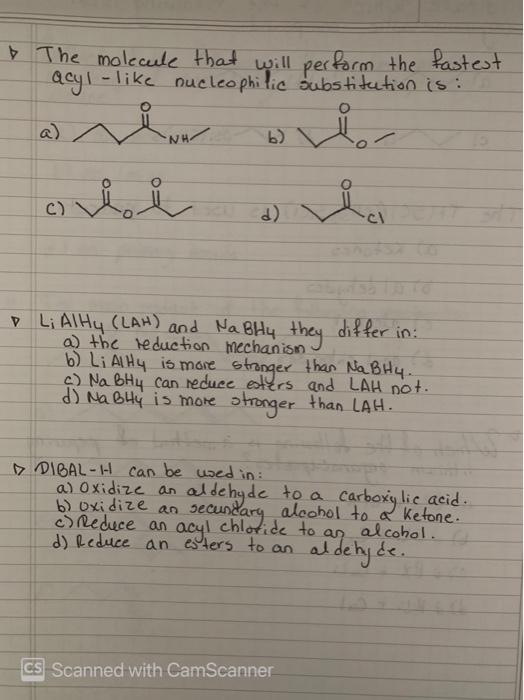 The molecule that will perform the fastest
acyl-like nucleophilic substitution is:
a) O NH b) O O
c) O O O d) O Cl
LiAlH4 (LAH) and NaBH4 they differ in:
a) the reduction mechanism.
b) LiAlH4 is more stronger than NaBH4.
c) NaBH4 can reduce esters and LAH not.
d) NaBH4 is more stronger than LAH.
DIBAL-H can be used in:
a) Oxidize an aldehyde to a carboxylic acid.
b) oxidize an secundary alcohol to a Ketone.
c) Reduce an acyl chloride to an alcohol.
d) Reduce an esters to an aldehyde.
CS Scanned with CamScanner